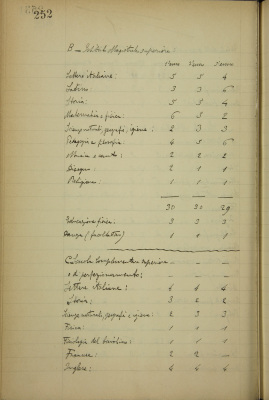 252
B = Istituto Magistrale superiore:
I corso II corso III corso
Lettere italiane: 5 5 4
Latino: 3 3 6
Storia: 5 5 4
Matematica e fisica: 6 5 2
Scienze naturali, geografia, igiene: 2 3 3
Pedagogia e filosofia 4 5 6
Musica e canto: 2 2 2
Disegno: 2 1 1
Religione: 1 1 1
30 30 29
Educazione fisica: 3 3 3
Danza (facoltativa) 1 1 1
C Scuola Complementare superiore — — —
o di perfezionamento: — — —
Lettere italiane: 4 4 4
Storia: 3 2 2
Scienze naturali, geografia e igiene: 2 3 3
Fisica: 1 1 1
Fisiologia del bambino: 1 1 1
Francese: 2 2 —
Inglese: 4 4 4